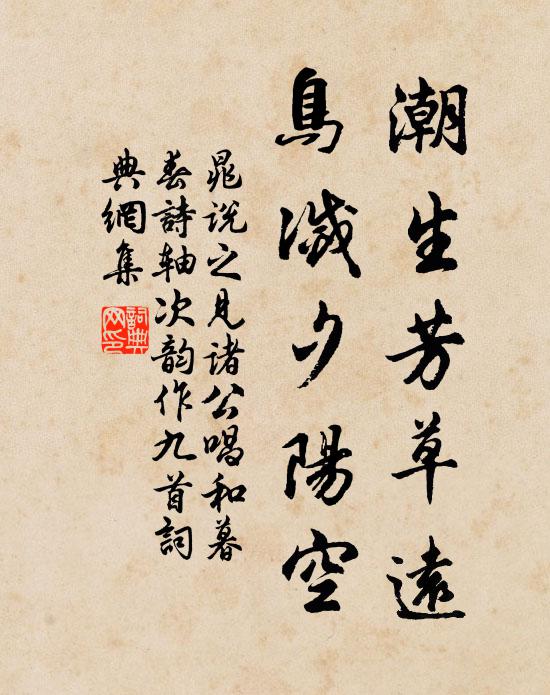 潮生芳草遠
鳥滅夕陽空
晁說之見諸公唱和暮
春詩軸次韵作九首詞
典網集
詞典網印